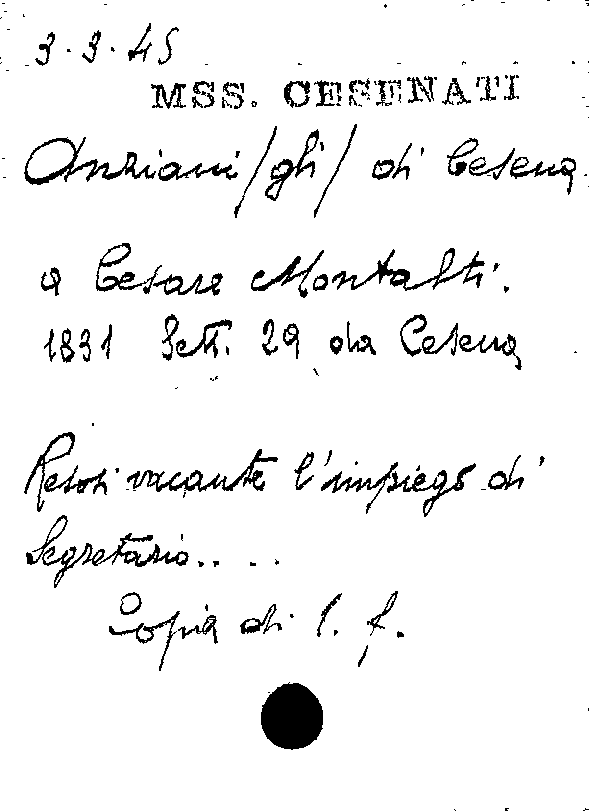 3.3.45
MSS. CESENATI
Anziani /gli/ di Cesena
a Cesare Montalti.
1831 Sett. 29 da Cesena
Resosi vacante l'impiego di
Segretario.. . .
Copia di C. f.